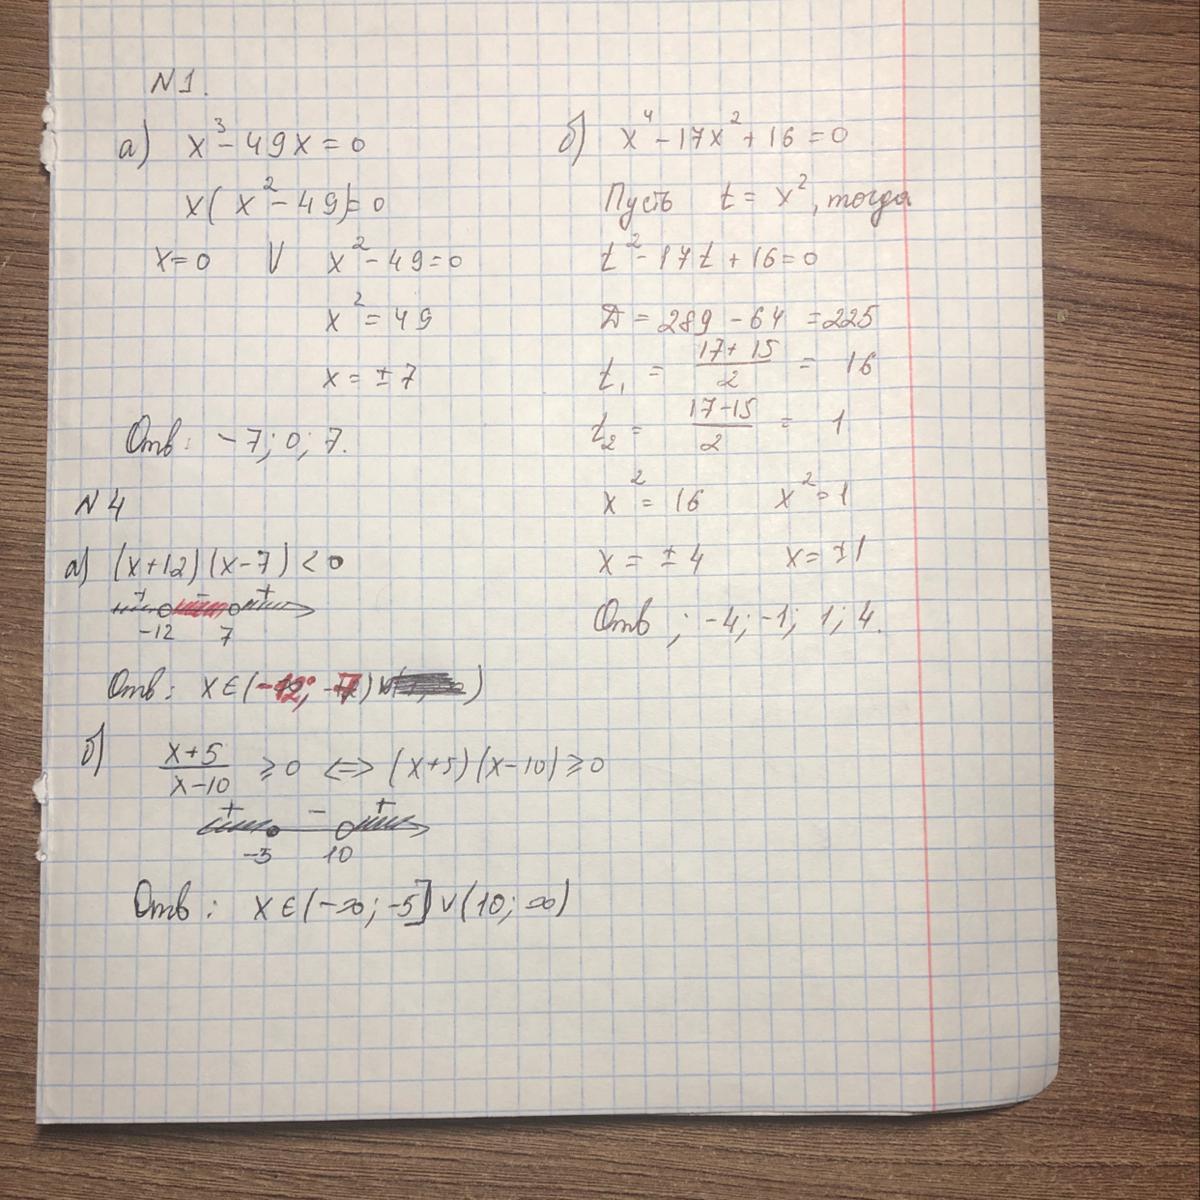 N1.
а) x³ - 49x = 0
x(x² - 49) = 0
x = 0 V x² - 49 = 0
x² = 49
x = ± 7
Отв: -7; 0; 7.
б) x⁴ - 17x² + 16 = 0
Пусть t = x², тогда
t² - 17t + 16 = 0
D = 289 - 64 = 225
t₁ = (17 + 15)/2 = 16
t₂ = (17 - 15)/2 = 1
x² = 16 x² = 1
x = ± 4 x = ± 1
Отв ; -4; -1; 1; 4.
N4
а) (x+12)(x-7) < 0
+ - +
-12 7
Отв: x ∈ (-12; 7)
б) (x+5)/(x-10) ≥ 0 ⇔ (x+5)(x-10) ≥ 0
+ - +
-5 10
Отв: x ∈ (-∞; -5] ∪ (10; ∞)